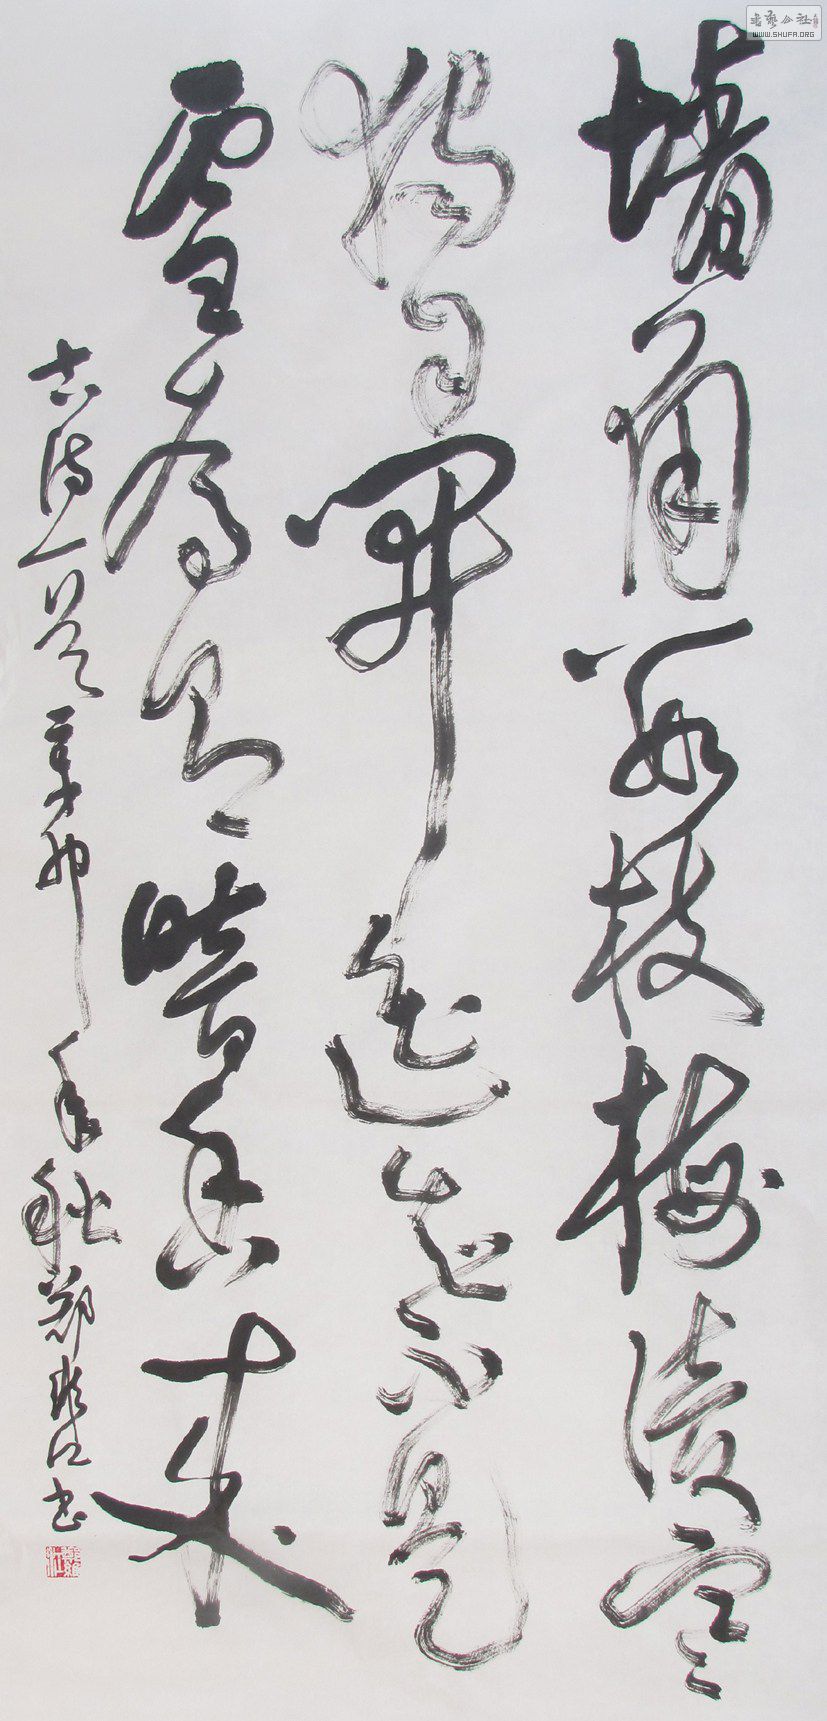 墙角数枝梅凌寒
獨自開遥知不是
雪為有暗香来
古诗一首 辛卯年秋 郑 江书
書藝公社
WWW.SHUFA.ORG